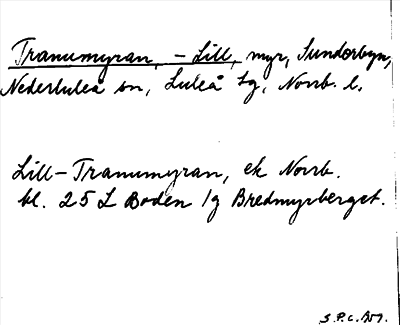 Tranumyran, - Lill, myr, Sunderbyn,
Nederluleå sn, Luleå tg, Norrb. l.
Lill-Tranumyran, ek Norrb.
bl. 25 L Boden 1g Bredmyrberget.
S.P.C.